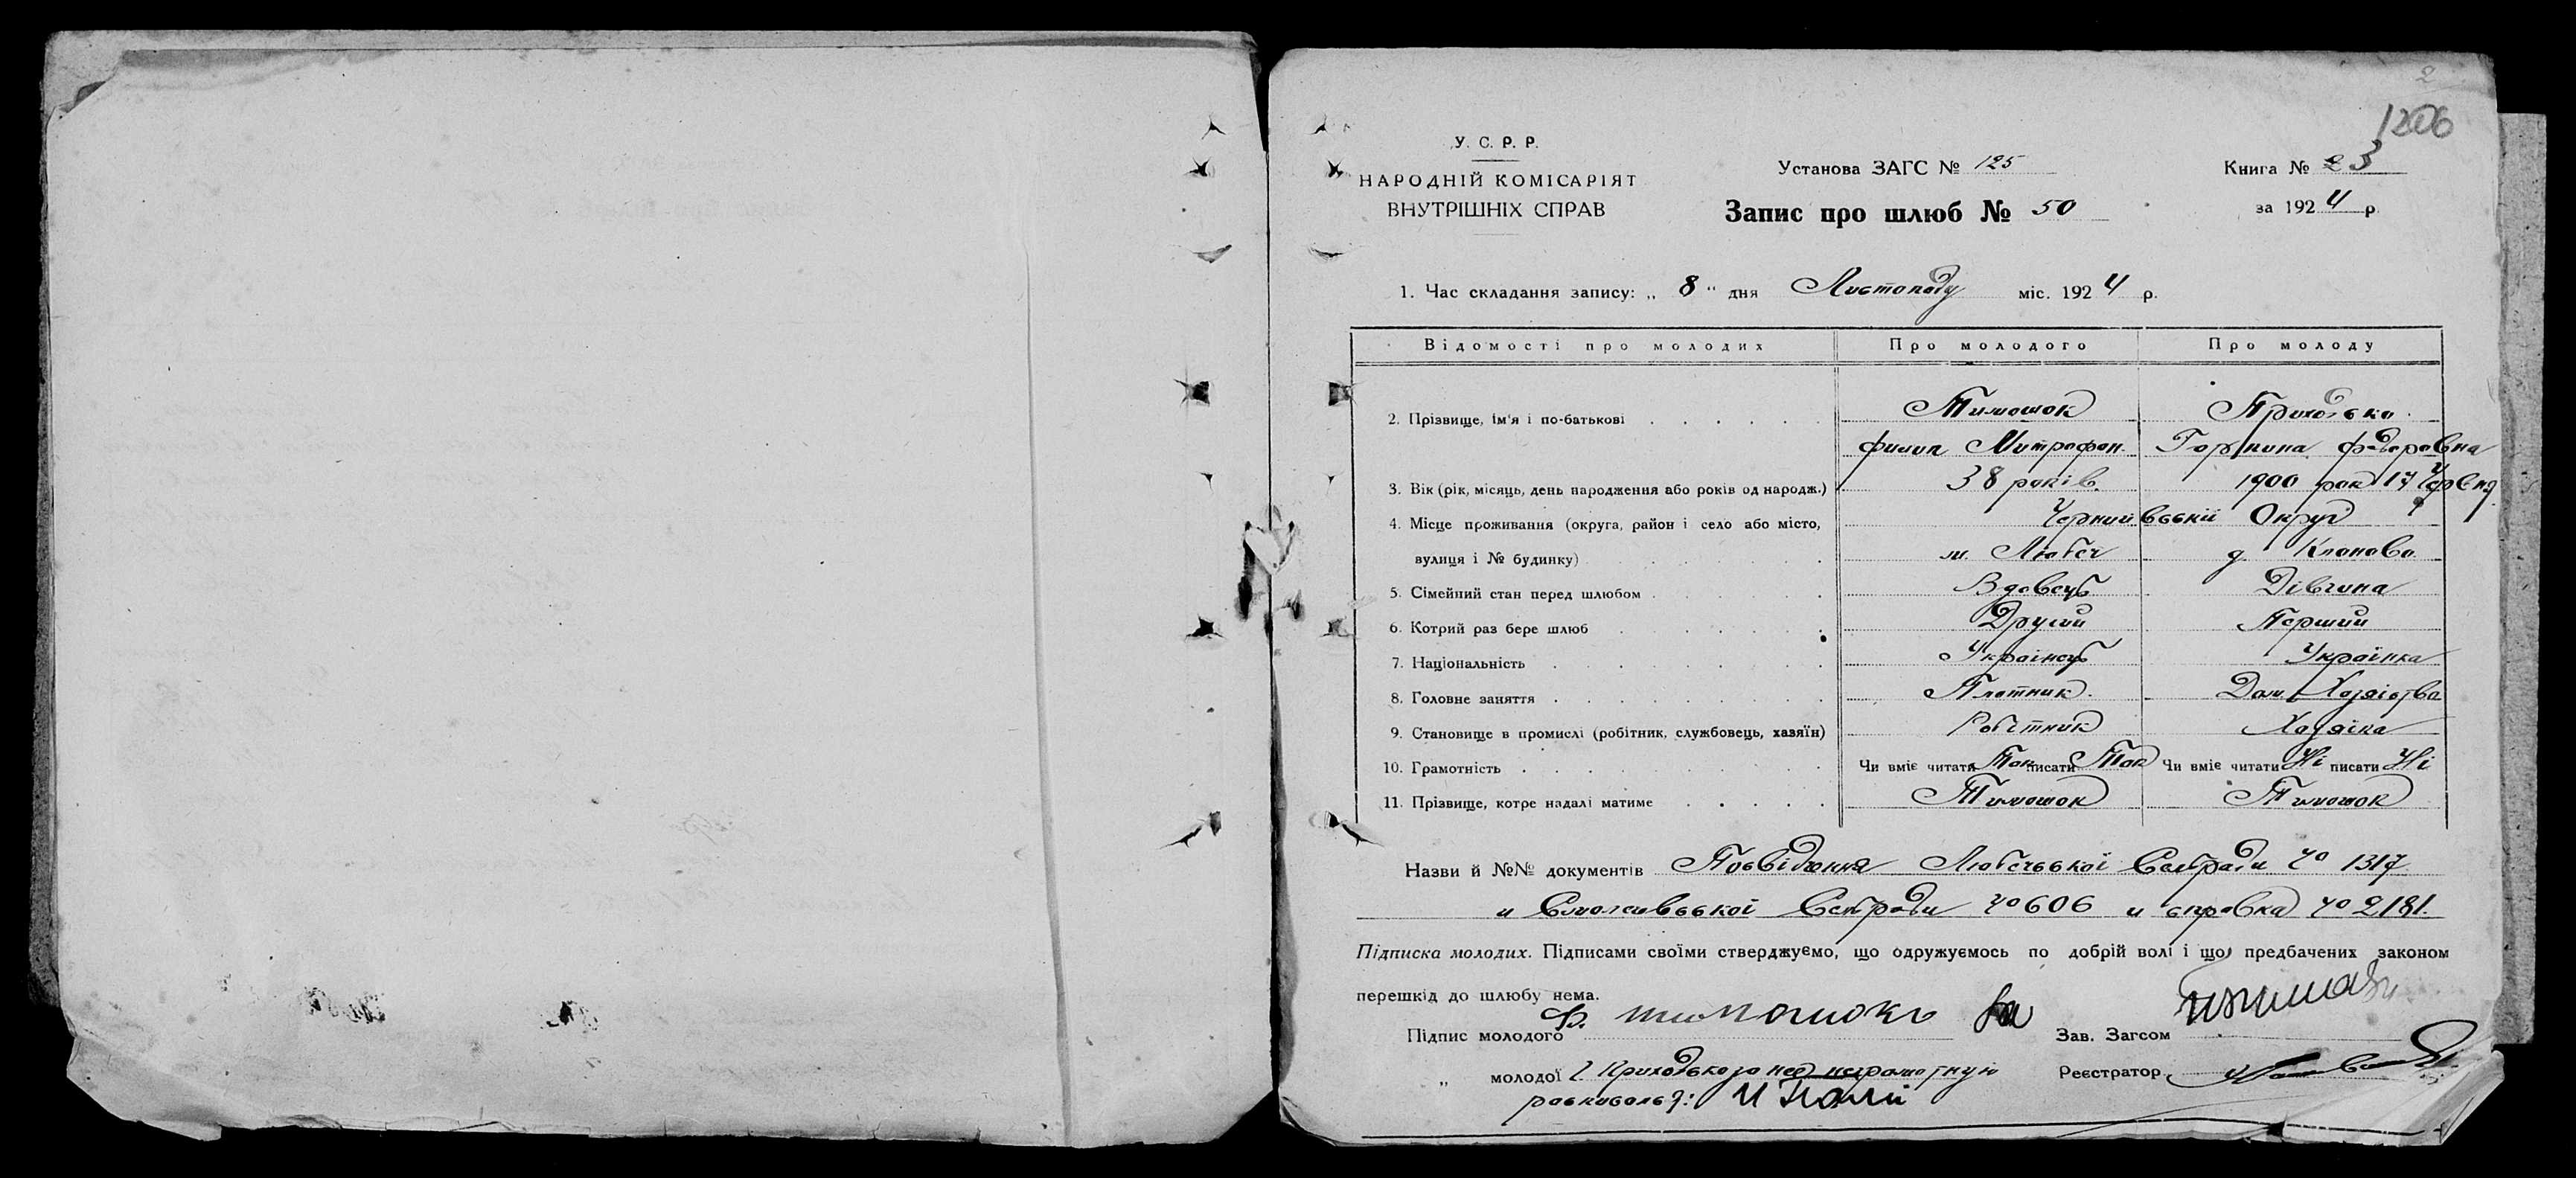 2
1206
У. С. Р. Р.
НАРОДНІЙ КОМІСАРІЯТ
ВНУТРІШНІХ СПРАВ
Установа ЗАГС № 125
Запис про шлюб № 50
Книга № 3
за 1924 р
1. Час складання запису: „ 8 " дня Листопаду міс. 1924 р.
Відомості про молодих Про молодого Про молоду
2. Прізвище, ім'я і по-батькові Тимошок Приходько
филип Митрофан. Горпина федоровна
3. Вік (рік, місяць, день народження або років од народж.) 38 років. 1900 рок 17 Червня
4. Місце проживання (округа, район і село або місто, Чернигівскій Округ
вулиця і № будинку) м. Любеч д. Клоново
5. Сімейний стан перед шлюбом Вдовець Дівчина
6. Котрий раз бере шлюб Другий Перший
7. Національність Українець Українка
8. Головне заняття Плотник. Дом. Хозяіства
9. Становище в промислі (робітник, службовець, хазяїн) Робітник Хазяіка
10. Грамотність Чи вміє читати Так писати Так Чи вміє читати Ні писати Ні
11. Прізвище, котре надалі матиме Тимошок Тимошок
Назви й №№ документів Посвідчення Любечської Сельради Чо 1317
и Сради Чо 606 и справка Чо 2181.
Підписка молодих. Підписами своїми стверджуємо, що одружуємось по добрій волі і що предбачених законом
перешкід до шлюбу нема.
Підпис молодого Ф. тимошокъ Зав. Загсом
„ молодої Г Приходько за нее неграмотную Реєстратор